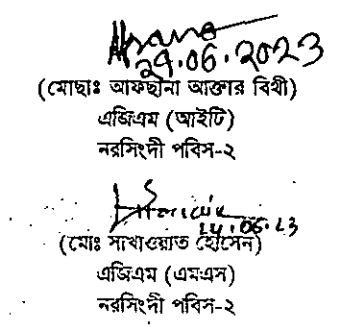 29.06.2023
(মোছাঃ আফছানা আক্তার বিথী)
এজিএম (আইটি)
নরসিংদী পবিস-২
(মোঃ সাখাওয়াত হোসেন)
এজিএম (এমএস)
নরসিংদী পবিস-২